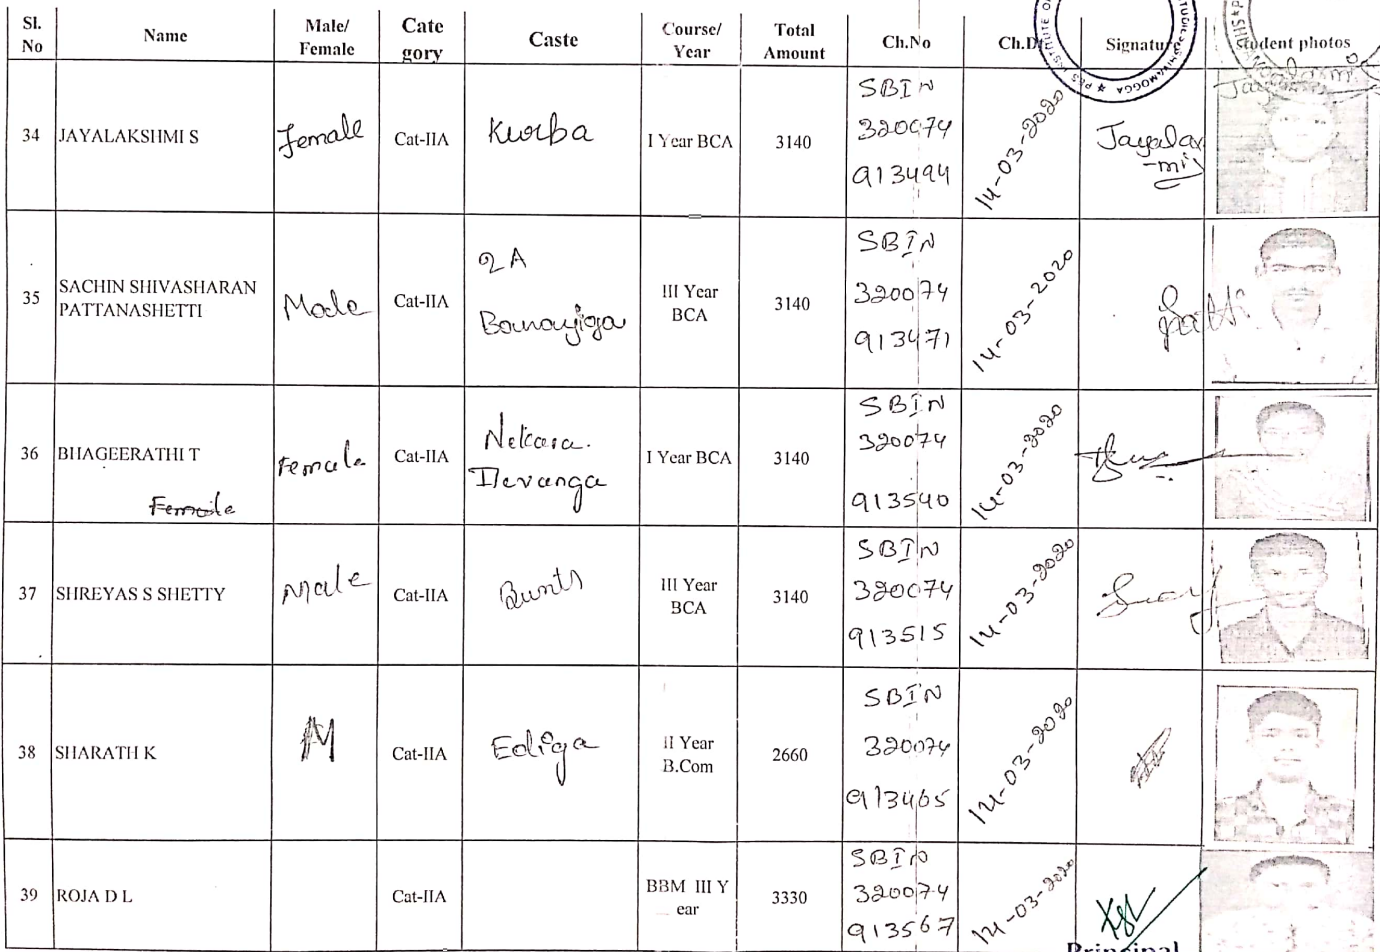 Sl. No Name Male/ Female Cate gory Caste Course/ Year Total Amount Ch.No Ch.D Signature student photos
PES INSTITUTE O
SHIVAMOGGA
34 JAYALAKSHMI S Female Cat-IIA Kurba I Year BCA 3140 SBIN 320074 913494 14-03-2020 Jayalax -mi
35 SACHIN SHIVASHARAN PATTANASHETTI Male Cat-IIA 2A Banajiga III Year BCA 3140 SBIN 320074 913471 14-03-2020
36 BHAGEERATHI T Female Female Cat-IIA Nekara. Devanga I Year BCA 3140 SBIN 320074 913540 14-03-2020
37 SHREYAS S SHETTY Male Cat-IIA Bunts III Year BCA 3140 SBIN 320074 913515 14-03-2020
38 SHARATH K M Cat-IIA Ediga II Year B.Com 2660 SBIN 320074 913465 14-03-2020
39 ROJA D L Cat-IIA BBM III Y ear 3330 SBIN 320074 913567 14-03-2020
Principal